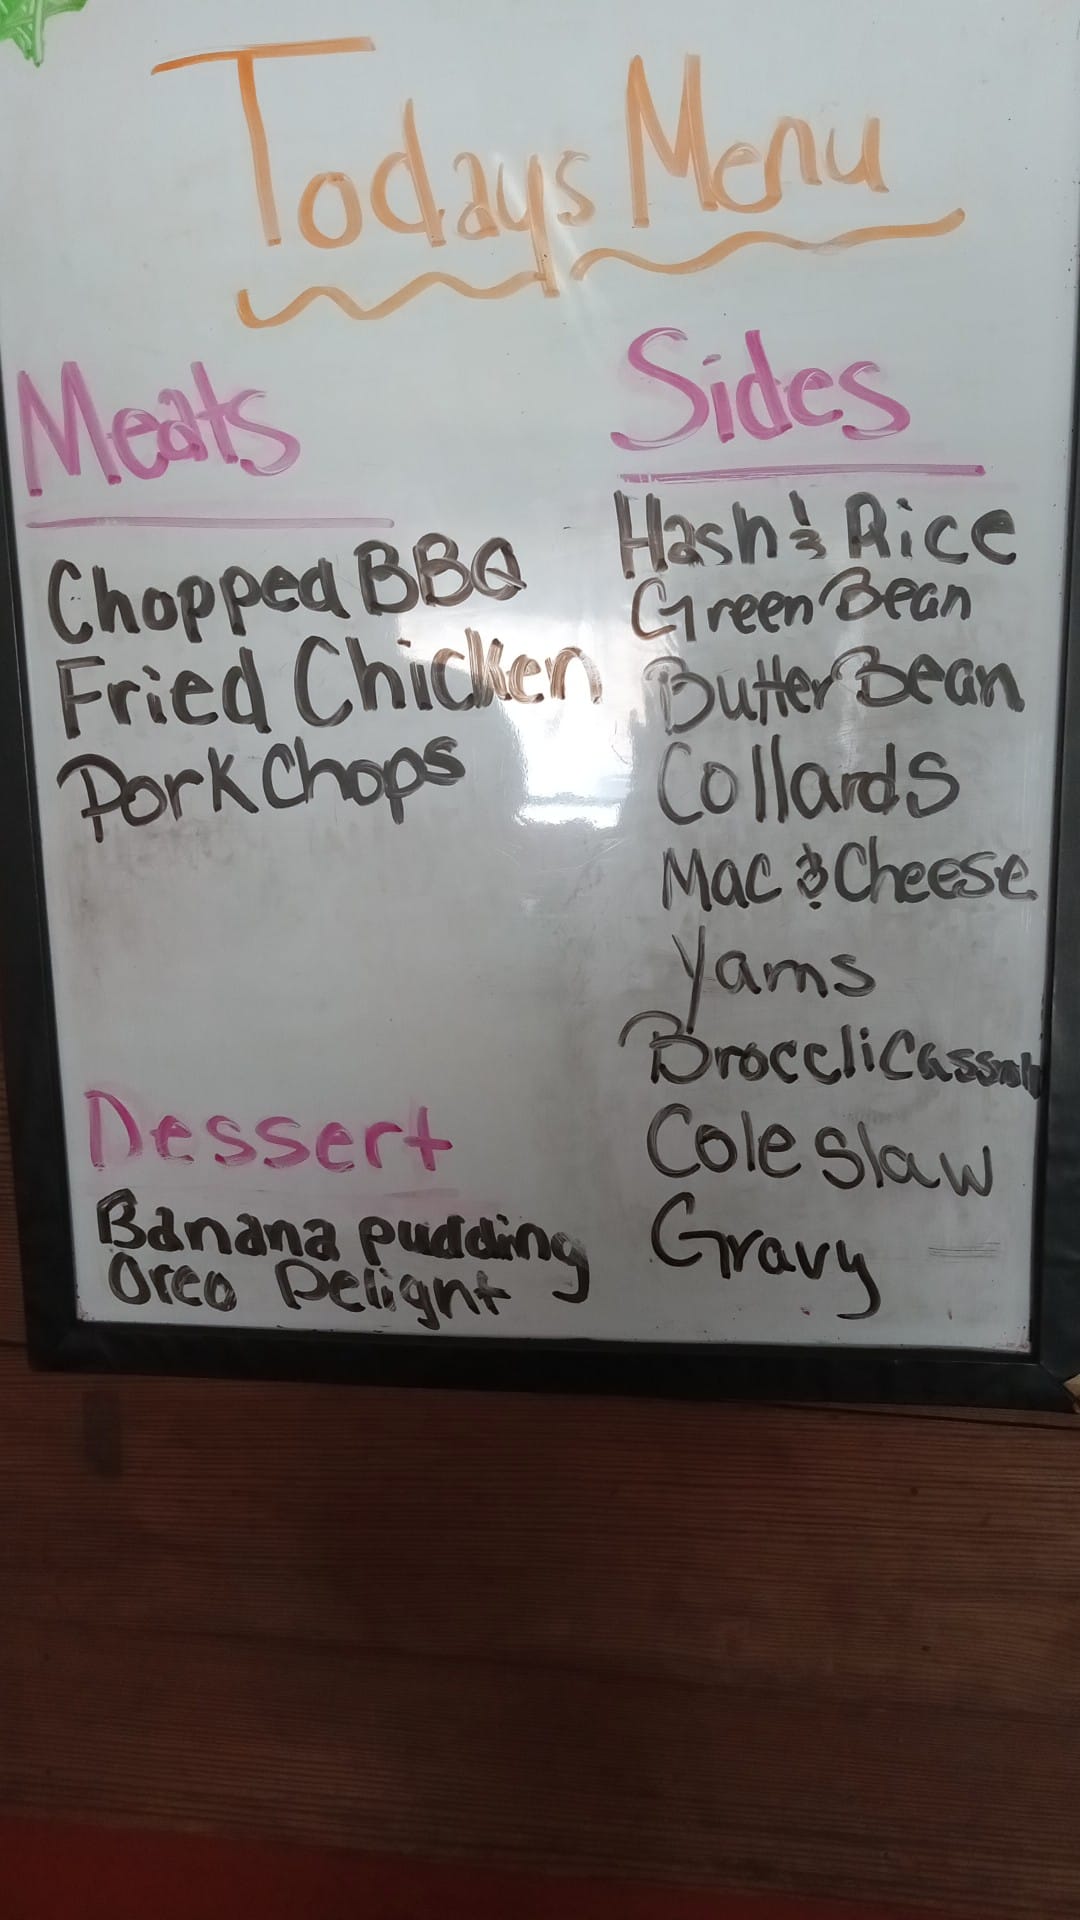 Todays Menu
Meats
Chopped BBQ
Fried Chicken
Pork Chops
Dessert
Banana pudding
Oreo Delight
Sides
Hash & Rice
Green Bean
Butter Bean
Collards
Mac & Cheese
Yams
Broccli
Cole slaw
Gravy